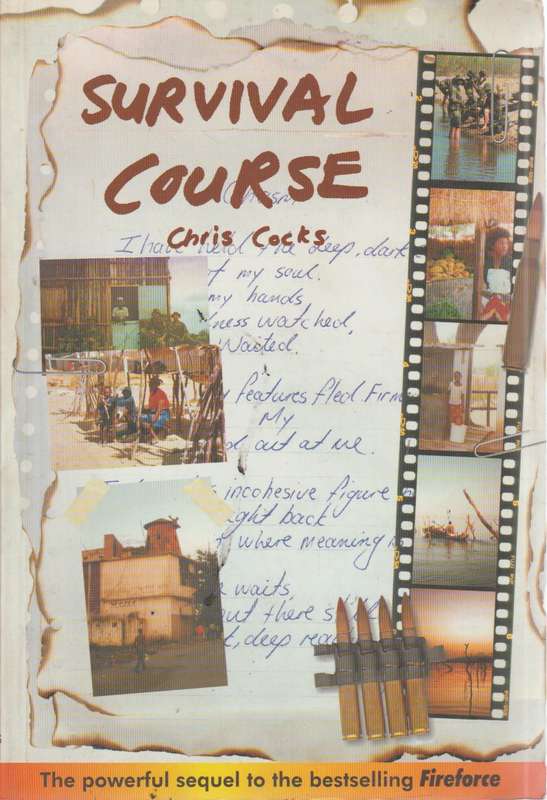 SURVIVAL
COURSE
Chris Cocks
I have held the deep, dark
my soul.
my hands
ness watched,
Waited.
features fled
My
out at me.
incohesive figure
ght back
where meaning
waits,
out there still
deep
The powerful sequel to the bestselling Fireforce